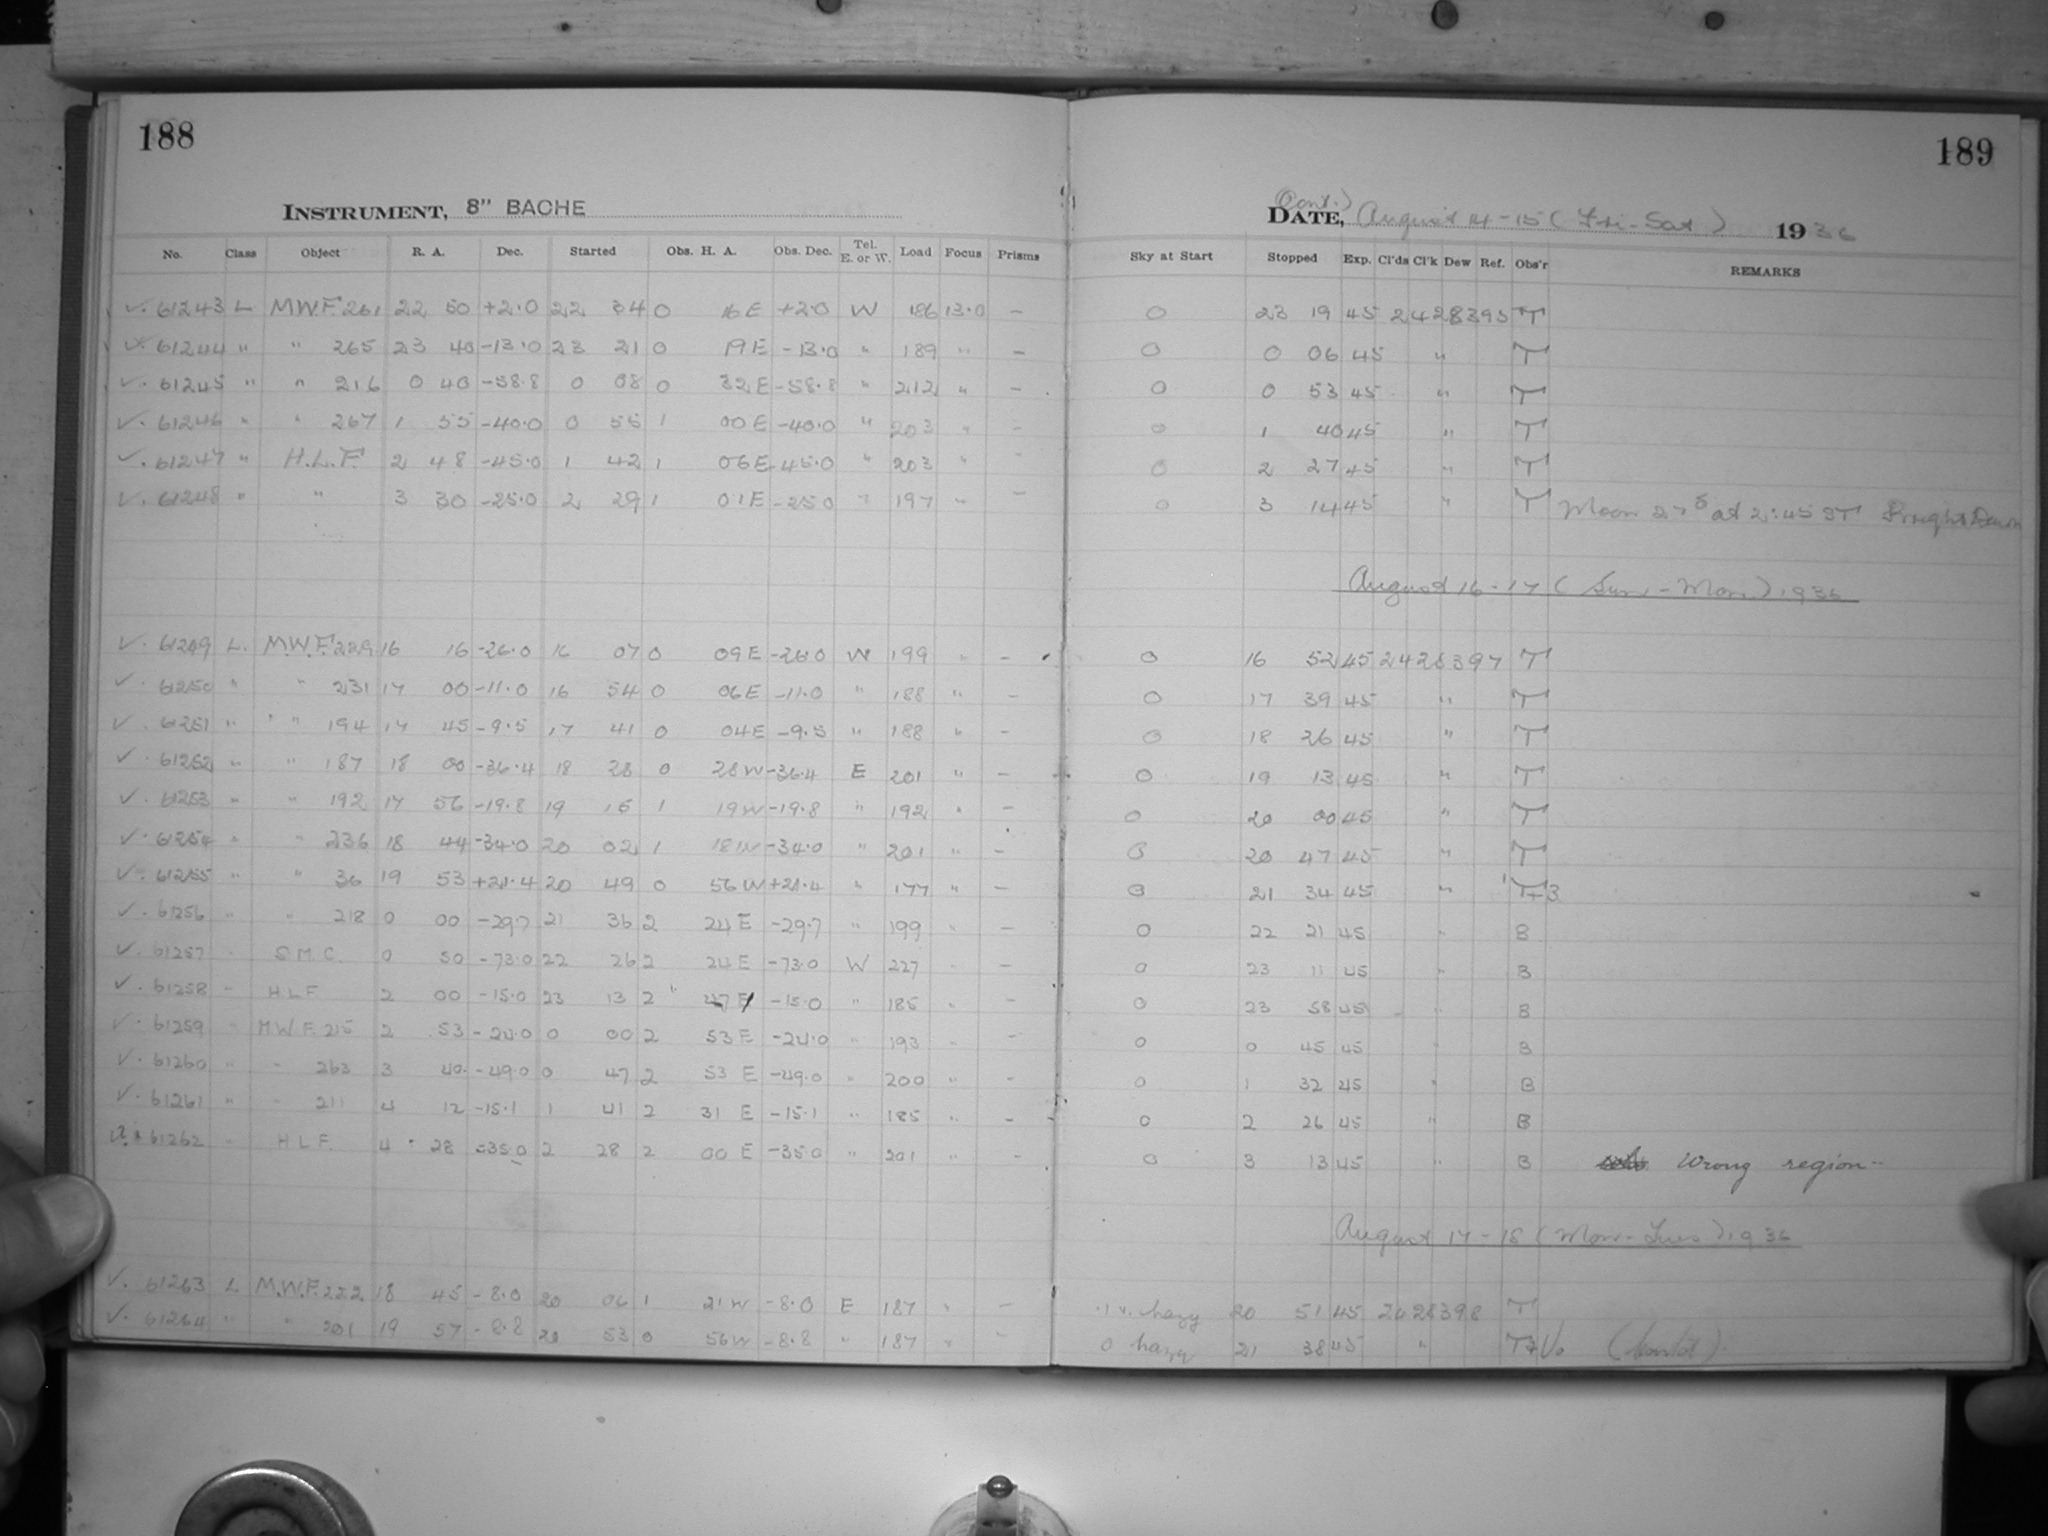 188
189
INSTRUMENT, 8" BACHE
(Cont.)
DATE, August 14-15 (Fri-Sat) 1936
No. Class Object R. A. Dec. Started Obs. H. A. Obs. Dec. Tel. E. or W. Load Focus Prisms Sky at Start Stopped Exp. Cl'ds Cl'k Dew Ref. Obs'r REMARKS
✓. 61243 L M.W.F. 261 22 50 +2.0 22 34 0 16 E +2.0 W 186 13.0 – 0 23 19 45 2428395 T
✓. 61244 " " 265 23 40 -13.0 23 21 0 19 E -13.0 " 189 " – 0 0 06 45 " T
✓. 61245 " " 216 0 40 -58.8 0 08 0 32 E -58.8 " 212 " – 0 0 53 45 " T
✓. 61246 " " 267 1 55 -40.0 0 55 1 00 E -40.0 " 203 " – 0 1 40 45 " T
✓. 61247 " H.L.F. 2 48 -45.0 1 42 1 06 E -45.0 " 203 " – 0 2 27 45 " T
✓. 61248 " " 3 30 -25.0 2 29 1 01 E -25.0 " 197 " – 0 3 14 45 " T Moon 27 at 2:45 ST Bright Dawn
August 16-17 (Sun-Mon) 1936
✓. 61249 L. M.W.F. 229 16 16 -26.0 16 07 0 09 E -26.0 W 199 " – 0 16 52 45 2428397 T
✓. 61250 " " 231 17 00 -11.0 16 54 0 06 E -11.0 " 188 " – 0 17 39 45 " T
✓. 61251 " " 194 17 45 -9.5 17 41 0 04 E -9.5 " 188 " – 0 18 26 45 " T
✓. 61252 " " 187 18 00 -36.4 18 28 0 28 W -36.4 E 201 " – 0 19 13 45 " T
✓. 61253 " " 192 17 56 -19.8 19 15 1 19 W -19.8 " 192 " – 0 20 00 45 " T
✓. 61254 " " 236 18 44 -34.0 20 02 1 18 W -34.0 " 201 " – 0 20 47 45 " T
✓. 61255 " " 36 19 53 +21.4 20 49 0 56 W +21.4 " 177 " – 0 21 34 45 " T+B
✓. 61256 " " 218 0 00 -29.7 21 36 2 24 E -29.7 " 199 " – 0 22 21 45 " B
✓. 61257 " S.M.C. 0 50 -73.0 22 26 2 24 E -73.0 W 227 " – 0 23 11 45 " B
✓. 61258 " H L F 2 00 -15.0 23 13 2 47 E -15.0 " 185 " – 0 23 58 45 " B
✓. 61259 " M.W.F. 215 2 53 -24.0 0 00 2 53 E -24.0 " 193 " – 0 0 45 45 " B
✓. 61260 " " 263 3 40 -49.0 0 47 2 53 E -49.0 " 200 " – 0 1 32 45 " B
✓. 61261 " " 211 4 12 -15.1 1 41 2 31 E -15.1 " 185 " – 0 2 26 45 " B
61262 " H L F. 4 28 -35.0 2 28 2 00 E -35.0 " 201 " – 0 3 13 45 " B Wrong region
August 17-18 (Mon-Tues) 1936
✓. 61263 L M.W.F. 222 18 45 -8.0 20 06 1 21 W -8.0 E 187 " – hazy 20 51 45 2428398 T
✓. 61264 " " 201 19 57 -8.8 20 53 0 56 W -8.8 " 187 " – 0 hazy 21 38 45 " (Cont'd)